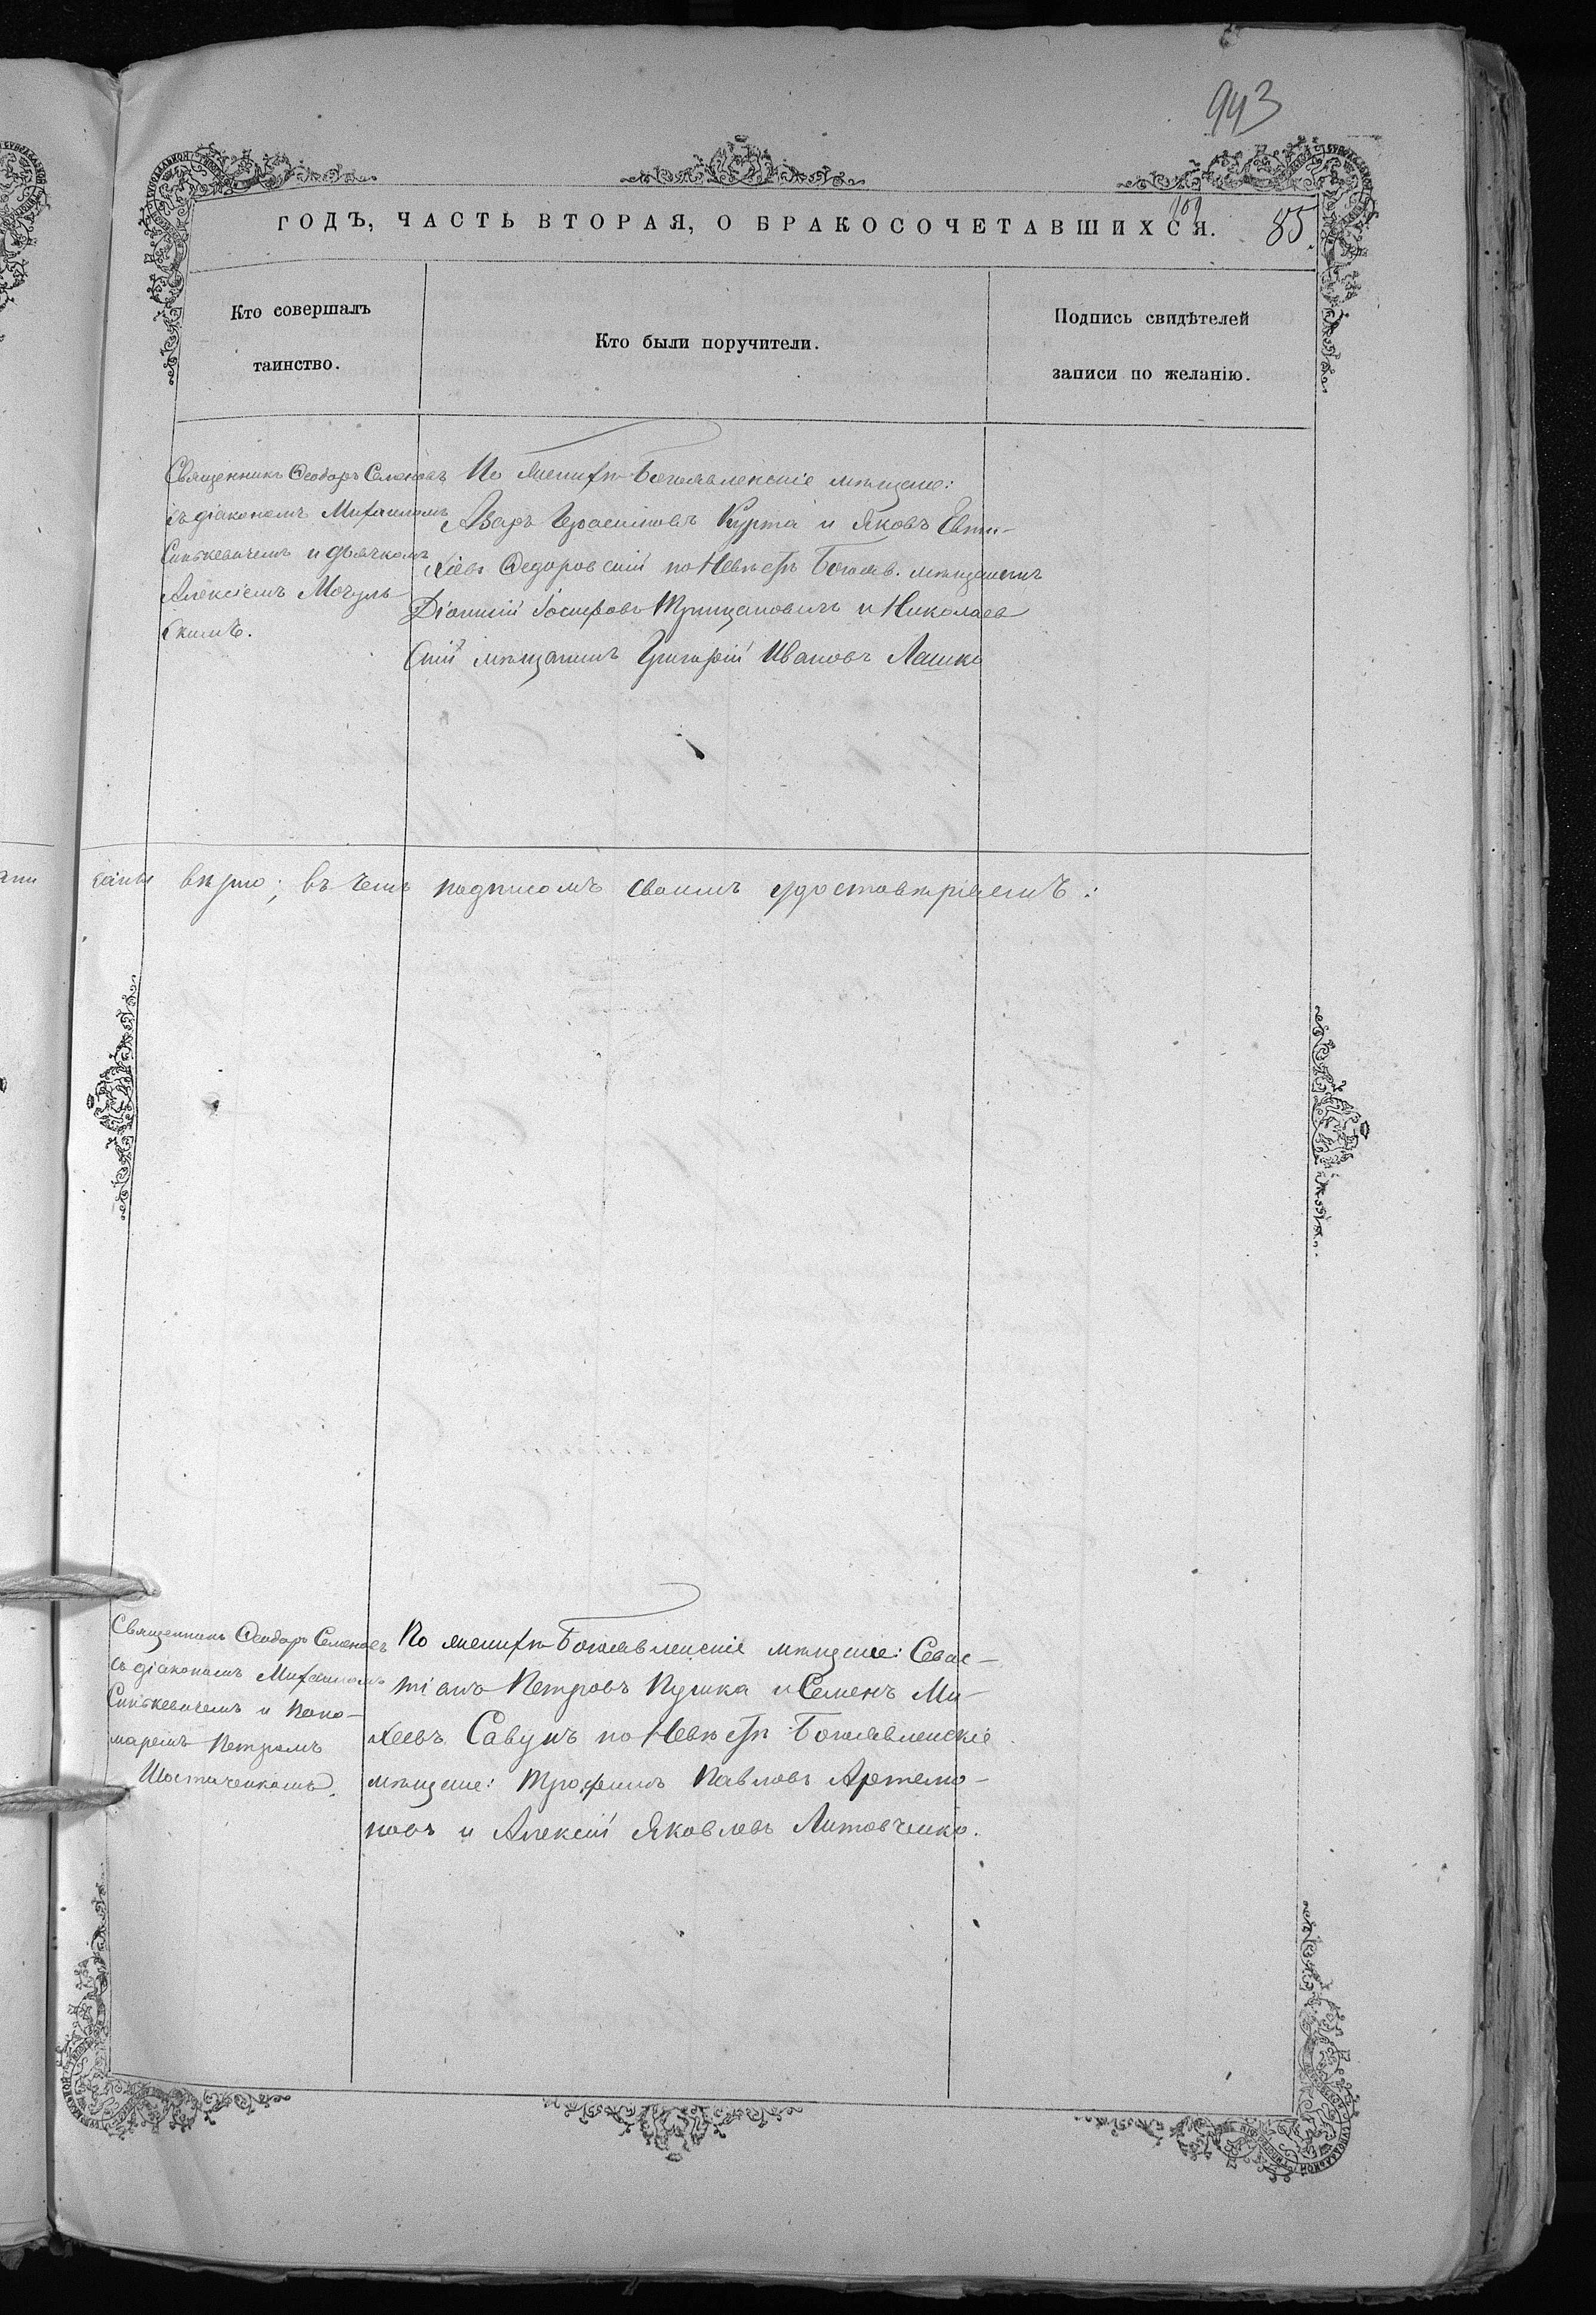 943
ГОДЪ, ЧАСТЬ ВТОРАЯ, О БРАКОСОЧЕТАВШИХСЯ.
109
85
Кто совершалъ
таинство.
Кто были поручители.
Подпись свидѣтелей
записи по желанію.
Священникъ Ѳеодоръ Семеновъ
съ діакономъ Михаиломъ
Синькевичемъ и дьячкомъ
Алексіемъ Могуль
скимъ.
По женихѣ Богоявленскіе мѣщане:
Азаръ Герасимовъ Курта и Яковъ Евти-
хіевъ Ѳедоровскій по Невѣстѣ Богояв. мѣщанинъ
Діонисій Іосифовъ Трищановичъ и Николаев
скій мѣщанинъ Григорій Ивановъ Лашко
вѣрно; въ чемъ подписомъ своимъ удостовѣряемъ:
Священникъ Ѳеодоръ Семеновъ
съ діакономъ Михаиломъ
Синькевичемъ и Поно-
маремъ Петромъ
Шостаченкомъ.
По женихѣ Богоявленскіе мѣщане: Севас-
тіанъ Петровъ Пушка и Семенъ Ми-
хеевъ Савунъ по Невѣстѣ Богоявленскіе
мѣщане: Трофимъ Павловъ Артемо-
новъ и Алексій Яковлевъ Литовченко.